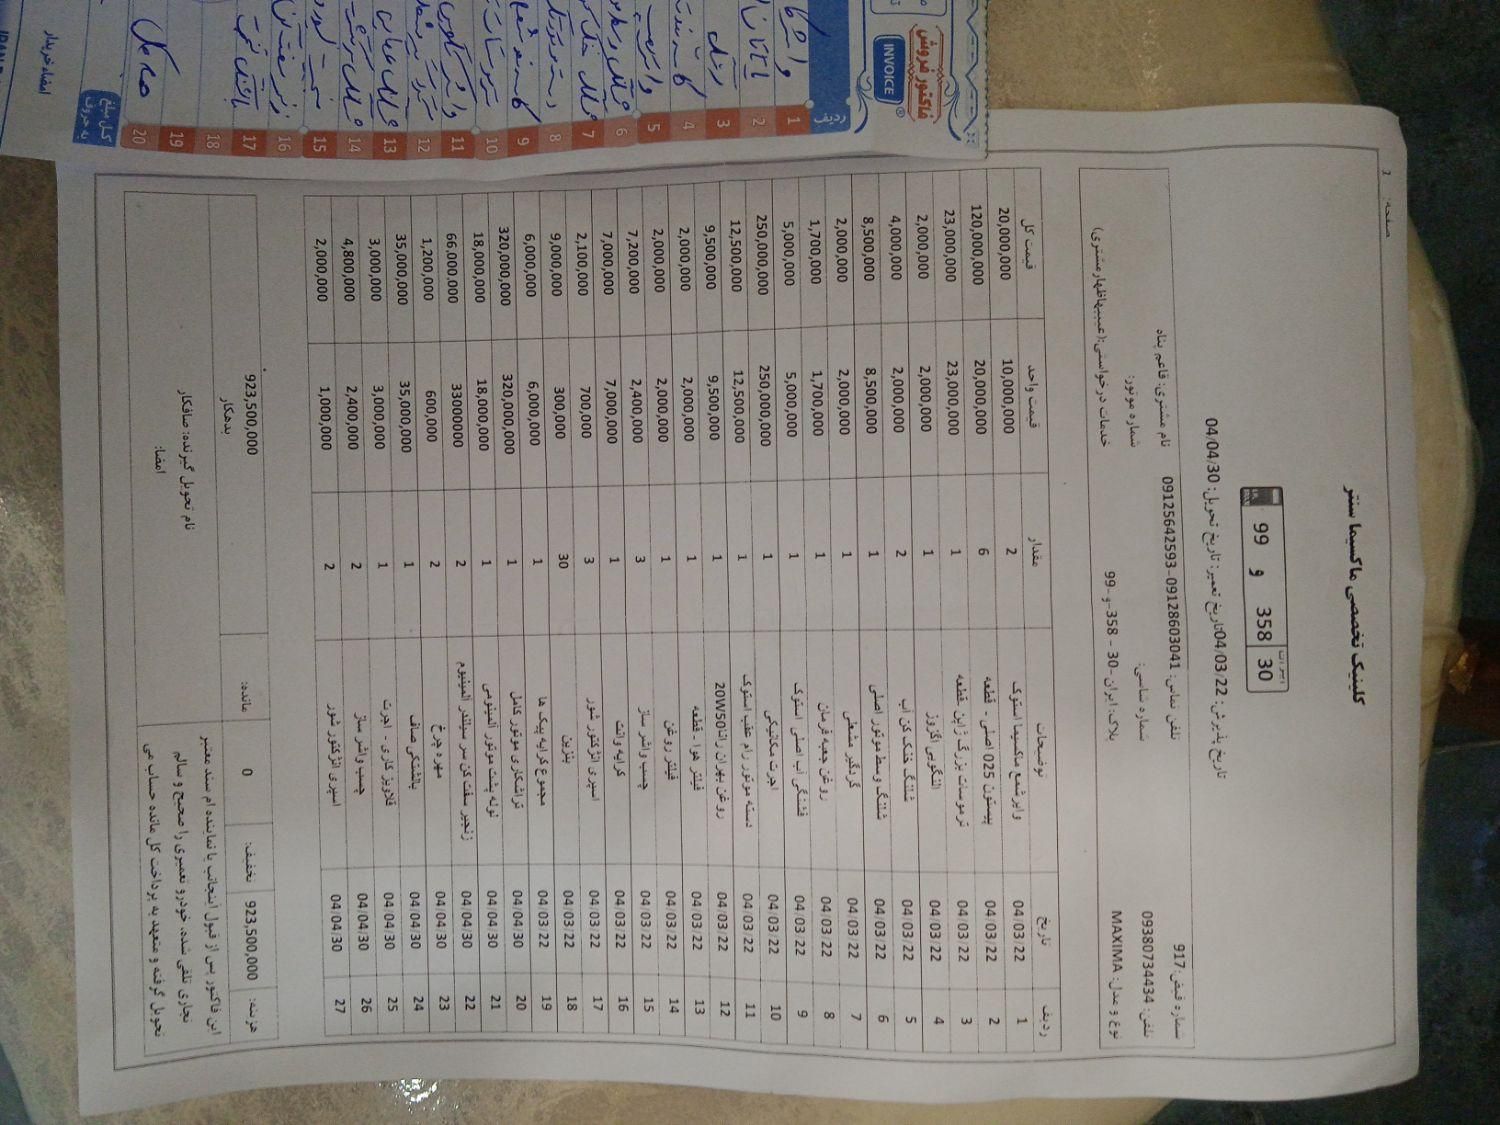 صفحه: 1
کلینیک تخصصی ماکسیما سنتر
99 و 358 30
تاریخ پذیرش: 04/03/22 تاریخ تعمیر: تاریخ تحویل: 04/04/30
شماره قبض: 917 تلفن تماس: 09128603041-09125642593 نام مشتری: قاعم پناه
تلفن: 09380734434 شماره شاسی: شماره موتور:
نوع و مدل: MAXIMA پلاک: ایران -30 - 358-و-99 خدمات درخواستی:(عیببیهاظهارمشتری)
ردیف تاریخ توضیحات مقدار قیمت واحد قیمت کل
1 04/03/22 وایرشمع ماکسیما استوک 2 10,000,000 20,000,000
2 04/03/22 پیستون 025 اصلی - قطعه 6 20,000,000 120,000,000
3 04/03/22 ترموستات بزرگ ژاپن قطعه 1 23,000,000 23,000,000
4 04/03/22 النگویی اگزوز 1 2,000,000 2,000,000
5 04/03/22 شلنگ خنک کن آب 2 2,000,000 4,000,000
6 04/03/22 شلنگ وسط موتور اصلی 1 8,500,000 8,500,000
7 04/03/22 گردگیر مشعلی 1 2,000,000 2,000,000
8 04/03/22 روغن جعبه فرمان 1 1,700,000 1,700,000
9 04/03/22 فشنگی آب اصلی استوک 1 5,000,000 5,000,000
10 04/03/22 اجرت مکانیکی 1 250,000,000 250,000,000
11 04/03/22 دسته موتور رام عقب استوک 1 12,500,000 12,500,000
12 04/03/22 روغن بهران رانا20W50 1 9,500,000 9,500,000
13 04/03/22 فیلتر هوا . قطعه 1 2,000,000 2,000,000
14 04/03/22 فیلتر روغن 1 2,000,000 2,000,000
15 04/03/22 چسب واشر ساز 3 2,400,000 7,200,000
16 04/03/22 کرایه وانت 1 7,000,000 7,000,000
17 04/03/22 اسپری انژکتور شور 3 700,000 2,100,000
18 04/03/22 بنزین 30 300,000 9,000,000
19 04/03/22 مجموع کرایه پیک ها 1 6,000,000 6,000,000
20 04/04/30 تراشکاری موتور کامل 1 320,000,000 320,000,000
21 04/04/30 لوله پشت موتور آلمینومی 1 18,000,000 18,000,000
22 04/04/30 زنجیر سفت کن سر سیلندر آلمینیوم 2 33000000 66,000,000
23 04/04/30 مهره چرخ 2 600,000 1,200,000
24 04/04/30 بالشتکی صاف 1 35,000,000 35,000,000
25 04/04/30 قلاویز کاری - اجرت 1 3,000,000 3,000,000
26 04/04/30 چسب واشر ساز 2 2,400,000 4,800,000
27 04/04/30 اسپری انژکتور شور 2 1,000,000 2,000,000
هزینه: 923,500,000 تخفیف: 0 مانده: 923,500,000
بدهکار
این فاکتور پس از قبول اینجانب یا نماینده ام سند معتبر
تجاری تلقی شده، خودرو تعمیری را صحیح و سالم
تحویل گرفته و متعهد به پرداخت کل مانده حساب می
نام تحویل گیرنده: صافکار
امضا:
فاکتور فروش
INVOICE
ردیف
1
2
3
4
5
6
7
8
9
10
11
12
13
14
15
16
17
18
19
20
کل مبلغ
به حروف
امضاء خریدار